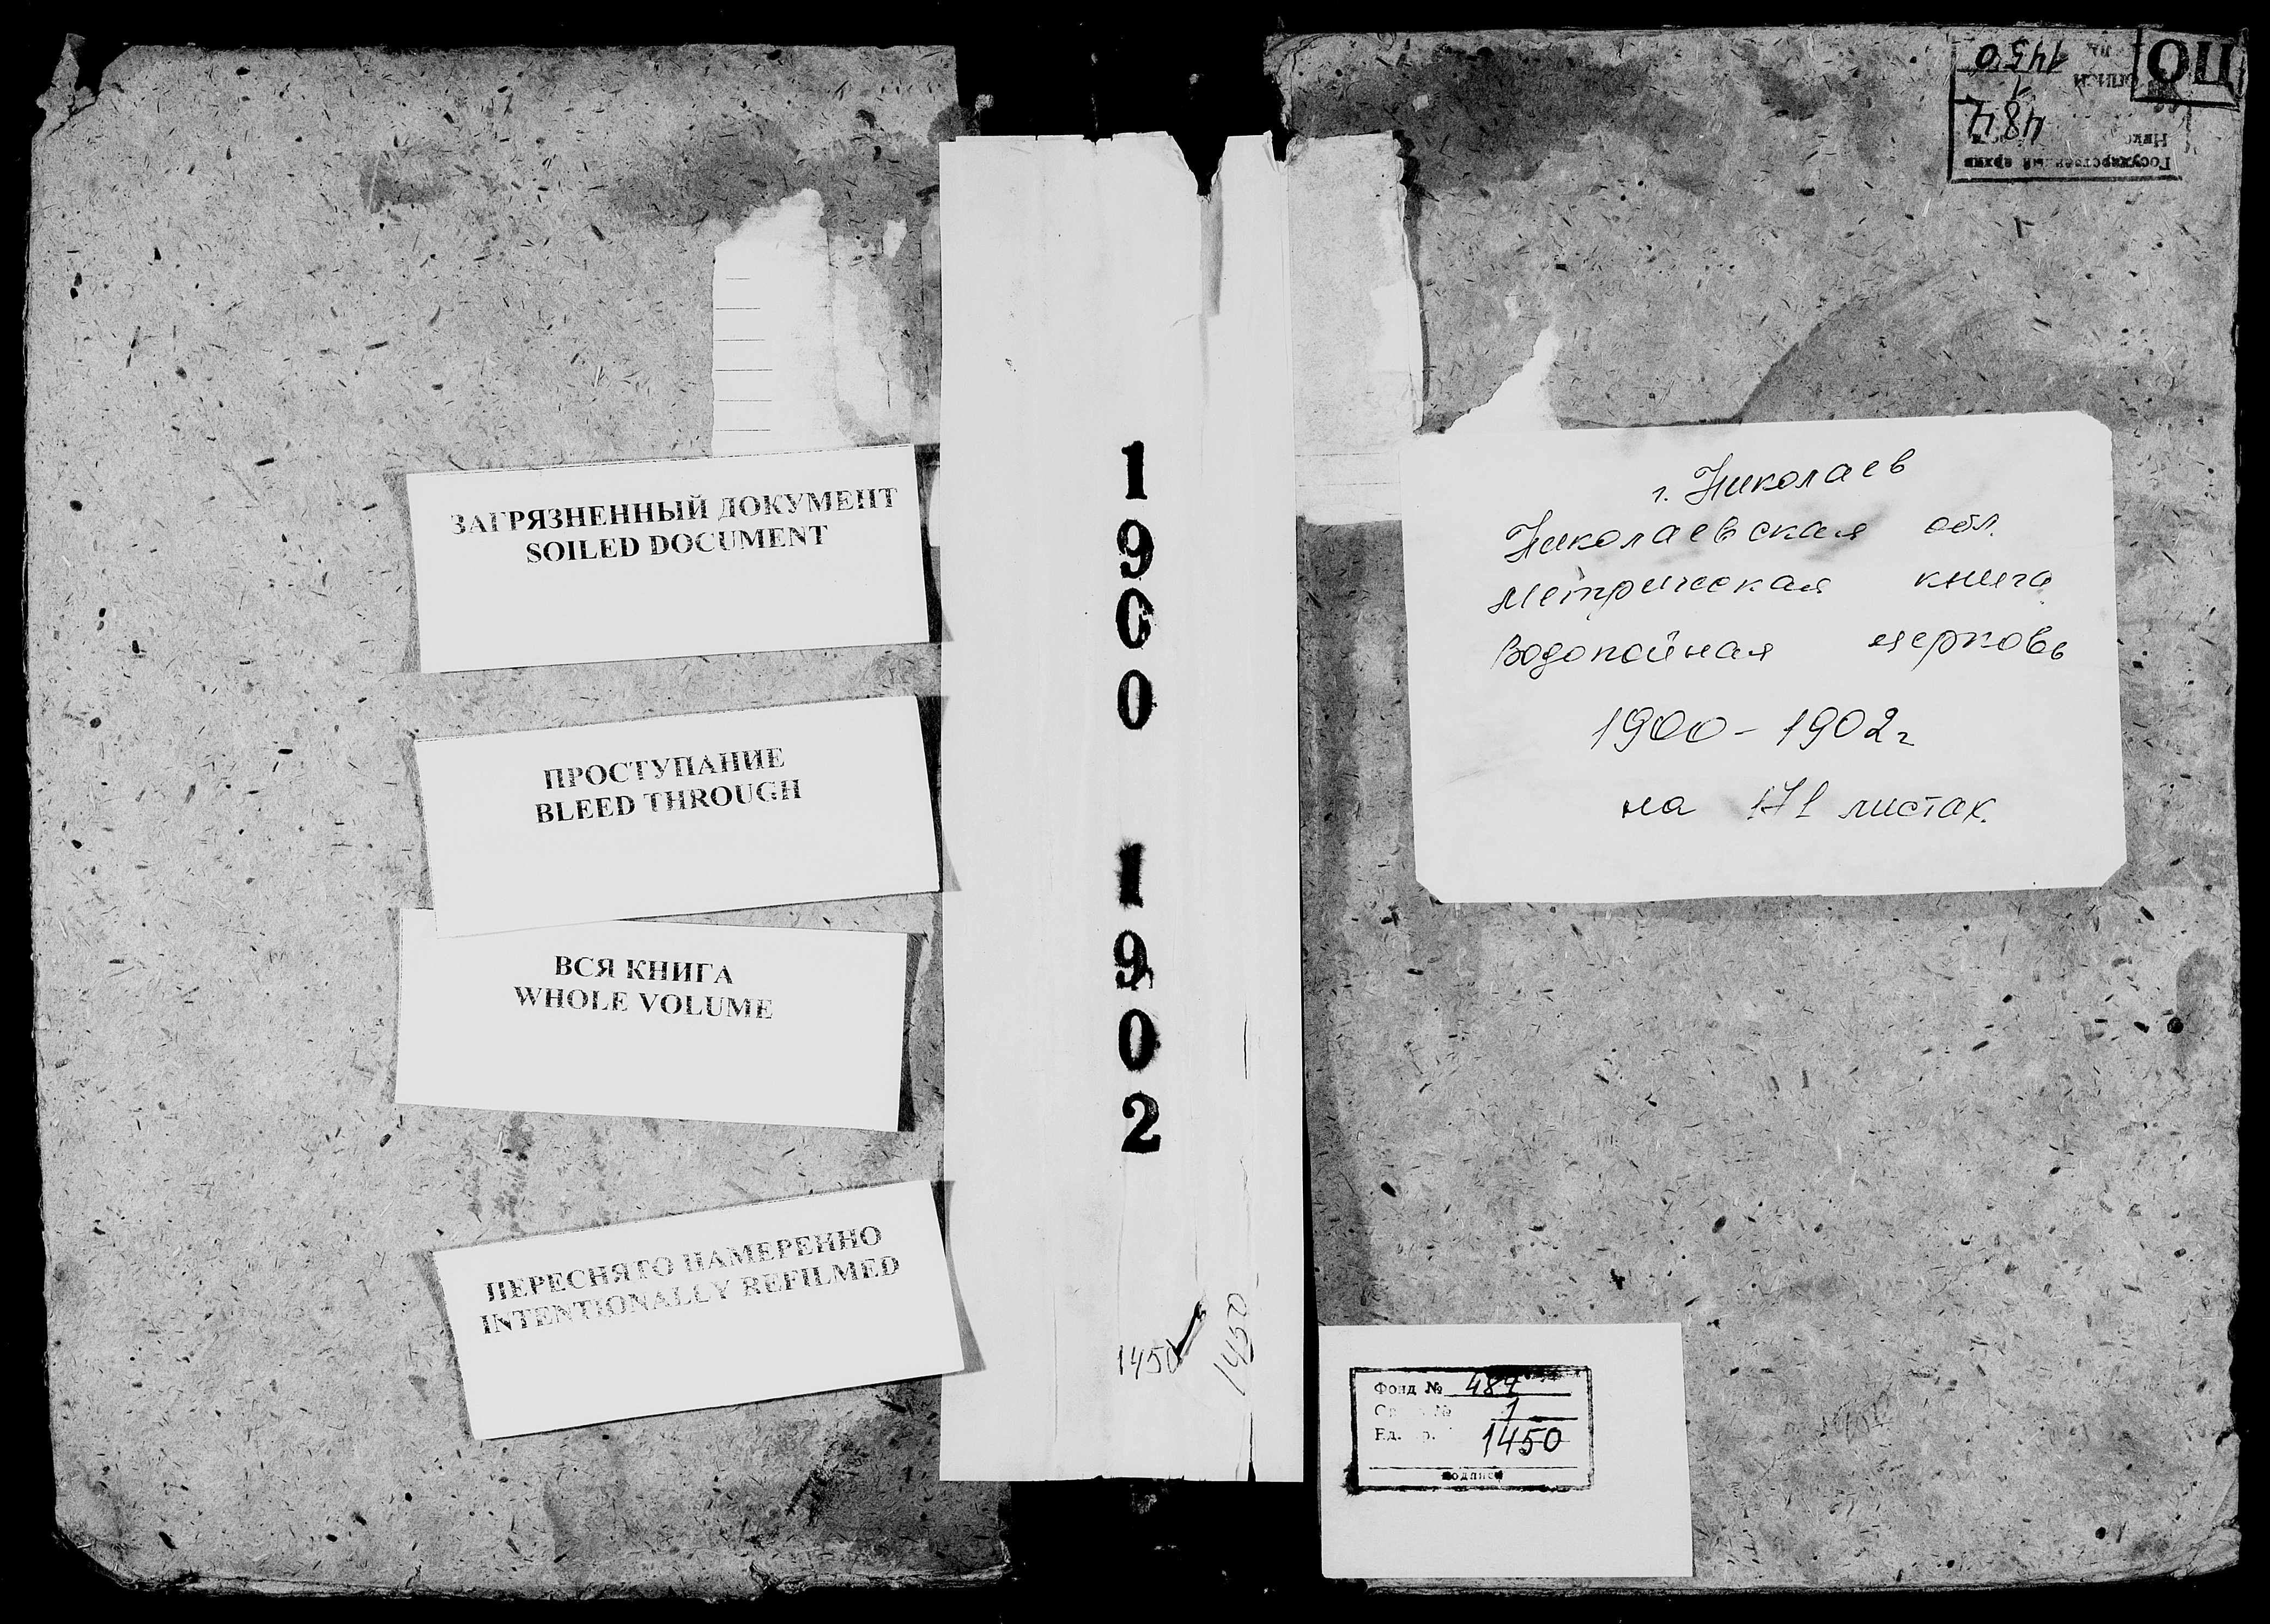 ЗАГРЯЗНЕННЫЙ ДОКУМЕНТ
SOILED DOCUMENT
ПРОСТУПАНИЕ
BLEED THROUGH
ВСЯ КНИГА
WHOLE VOLUME
ПЕРЕСНЯТО НАМЕРЕННО
INTENTIONALLY REFILMED
1900
1902
1450
1450
ОЦ
1450
1
484
Государственный архив
г. Николаев
Николаевская обл.
метрическая книга
Водопойная церковь
1900-1902г
на 171 листах.
Фонд № 484
№ 1
Ед. 1450
подпись